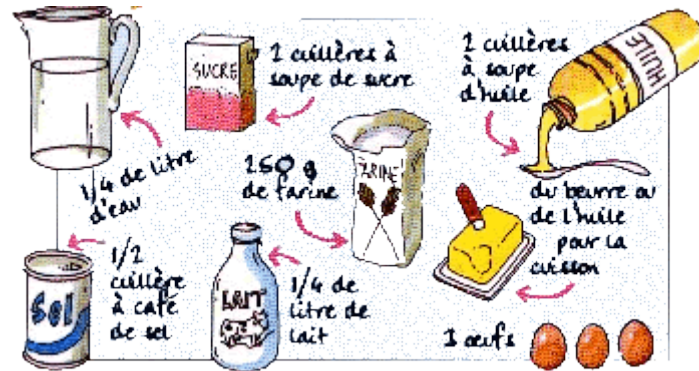 SUCRE
2 cuillères à
soupe de sucre
2 cuillères
à soupe
d'huile
HUILE
1/4 de litre
d'eau
250 g
de farine
FARINE
du beurre ou
de l'huile
pour la
cuisson
Sel
1/2
cuillère
à café
de sel
LAIT
1/4 de
litre de
lait
3 œufs